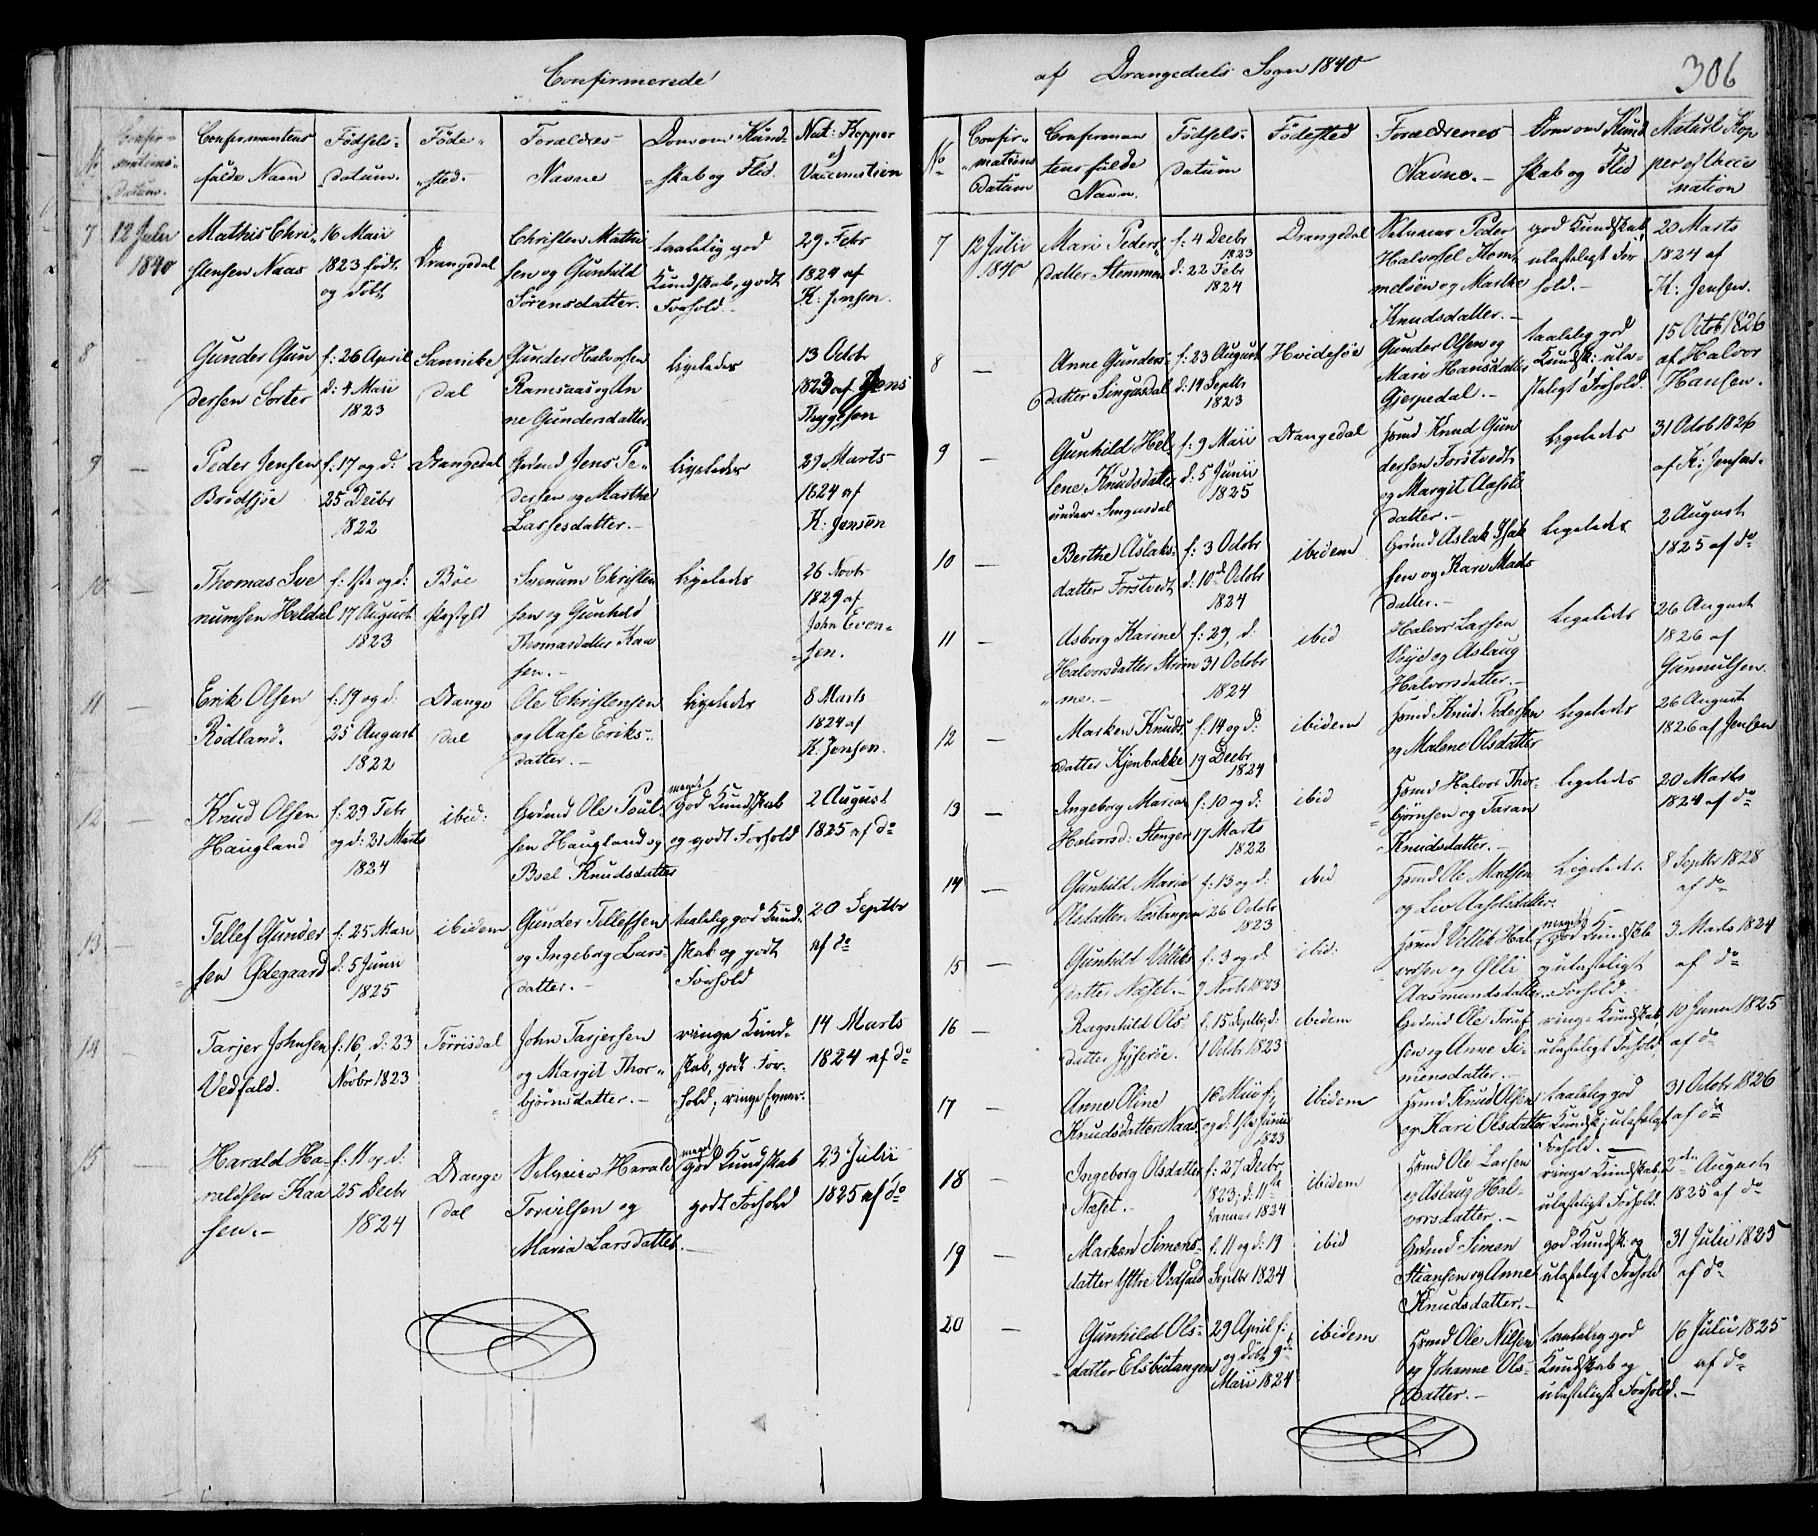 Confirmerede
No
Confir-
mations-
Datum.
Confirmantens
fulde Navn
Fødsels-
datum.
Føde-
sted.
Forældres
Navne
Dom om Kund-
skab og Flid.
Nat: Kopper
el
Vaccination
7
12 Julii
1840
Mathis Chri-
stensen Naas
16 Mai
1823 født
og døbt
Drangedal
Christen Mathi
sen og Gunhild
Sørensdatter.
taalelig god
Kundskab, godt
Forhold.
29. Febr
1824 af
K: Jensen.
8
Gunder Gun
dersen Sorter
f: 26 April
d: 4 Mai
1823
Sannike
dal
Gunder Halvorsen
Ramsaas og An
ne Gundersdatter
ligeledes
13 Octbr
1823 af Jens
Thygeson
9
Peder Jensen
Brødsjøe
f: 17 og d:
25 Decbr
1822
Drangedal
Grdmd Jens Pe-
dersen og Marthe
Larsesdatter.-
ligeledes
29 Marts
1824 af
K: Jensen
10
Thomas Sve
numsen Heldal
f: 1ste og d:
17 August
1823
Bøe
Præstgjld
Svenum Christen
sen og Gunhild
Thomasdatter Kaa
sen.-
ligeledes
26 Novbr
1829 af
John Even-
sen.
11
Erik Olsen
Rødland.
f: 19 og d:
25 August
1822
Drange
dal
Ole Christensen
og Aase Eriks-
datter.-
ligeledes
8 Marts
1824 af
K. Jensen.
12
Knud Olsen
Haugland
f: 29 Febr
og d: 31 Marts
1824
ibid:
Grdmd Ole Poul-
sen Haugland og
Boel Knudsdatter
meget
god Kundskab
og godt Forhold
2 August
1825 af do
13
Tellef Gunder
sen Ødegaard
f: 25 Mai
d: 5 Juni
1825
ibidem
Gunder Tellefsen
og Ingeborg Lars-
datter.-
taalelig god Kund-
skab og godt
Forhold
20 Septbr
af do
14
Tarjer Johnsen
Vedfald.
f: 16, d: 23
Novbr 1823
Tørrisdal
John Tarjersen
og Margit Thor-
bjørnsdatter.-
ringe Kund-
skab, godt For-
hold, ringe Evner.
14 Marts
1824 af do
15
Harald Ha-
raldsen Kaa
sen.-
f: 11 og d:
25 Decbr
1824
Drange
dal
Selveier Harald
Torvilsen og
Maria Larsdatter.-
meget
god Kundskab
godt Forhold
23 Julii
1825 af do
af Drangedals Sogn 1840
306
No
Confir-
mations
Datum
Confirman
tens fulde
Navn.
Fødsels-
datum
Fødested
Forældrenes
Navne.-
Dom om Kund
skab og Flid
Naturl Kop
per el Vacci
nation
7
12 Julii
1840
Mari Peders-
datter Stemmen
f: 4 Decbr
1823
d: 22 Febr
1824
Drangedal
Selveier Peder
Halvorsen
og Marthe
Knudsdatter.-
god Kundskab,
ulasteligt For
hold.-
20 Marts
1824 af
K: Jensen.
8
Anne Gunders-
datter Singusdal
f: 23 August
d: 14 Septbr
1823
Hvidesøe
Gunder Olsen og
Mari Hansdatter
Gjerpedal.-
taalelig god
Kundsk: ula-
steligt Forhold.
15 Octob 1826
af Halvor
Hansen.
9
Gunhild Hel
lene Knudsdatter
under Singusdal
f: 9 Maii
d: 5 Junii
1825
Drangedal
Hsmd Knud Gun
dersen Forstvedt
og Margit Aasold
datter.-
ligeledes
31 Octob 1826
af K: Jensen.
10
Berthe Aslaks-
datter Forstvedt
f: 3 Octobr
d: 10d Octobr
1824
ibidem
Grdmd Aslak Isak
sen og Kari Mads
datter.-
ligeledes
2 August
1825 af do
11
Asborg Karine
Halvorsdatter Strøm
me.-
f: 29, d:
31 Octobr
1824
ibid
Halvor Larsen
Voje og Aslaug
Halvorsdatter.-
ligeledes
26 August
1826 af
Gunnulsen.
12
Marken Knuds
datter Kjenbakke
f: 14 og d:
19 Decbr
1824
ibidem
Hsmd Knud Pedersen
og Malene Olsdatter
ligeledes
26 August
1826 af Jensen
13
Ingeborg Maria
Halvorsd: Stenger
f: 10 og d:
17 Marts
1822
ibid
Hsmd Halvor Thor-
bjørnsen og Taran
Knudsdatter.-
ligeledes
20 Marts
1824 af do
14
Gunhild Maria
Olsdatter Nostangen
f: 13 og d:
26 Octobr
1823
ibid
Hsmd Ole Madsen
og Liv Aasoldatter.
ligeledes.
8 Septbr 1828
af do
15
Gunhild Velliks
datter Næset.-
f: 3 og d
9 Novbr 1823
ibid:
Hsmd Vellik Hal
vorsen og Ølli
Aasmundsdatter.
meget
god Kundskb
og ulasteligt
Forhold.
3 Marts 1824
af do
16
Ragnhild Ols
datter Jyserøe.
f: 15 Septbr d:
1 Octbr 1823
ibidem
Grdmd Ole Toruf
sen og Anne Si-
mensdatter.-
ringe Kundskab,
ulasteligt Forhold.
10 Juni 1825
af do
17
Anne Oline
Knudsdatter Naas
16 Mai f,
og d: 1ste Junii
1823
ibidem
Hsmd Knud Olsen
og Kari Olsdatter
taalelig god
Kundsk; ulasteligt
Forhold.-
31 Octobr 1826
af do
18
Ingeborg Olsdatter
Næset.-
f: 27 Decbr,
1823, d: 11te
Januar 1824
ibidem
Hsmd Ole Larsen
og Aslaug Hal-
vorsdatter.-
ringe Kundskab,
ulasteligt Forhold.
2den August
1825 af do
19
Marken Simens-
datter Ytre Vedfald
f: 11 og d: 19
Septbr 1824
ibid
Grdmd Simen
Stiansen og Anne
Knudsdatter.-
god Kundsk: og
ulasteligt Forhold
31 Julii 1825
af do
20
Gunhild Ols-
datter Elsbutangen
29 April f:
og døbt 9de
Maii 1824
ibidem
Hsmd Ole Nilsen
og Johanne Ols-
datter.-
taalelig god
Kundskab og
ulasteligt Forhold.-
16 Julii 1825
af do